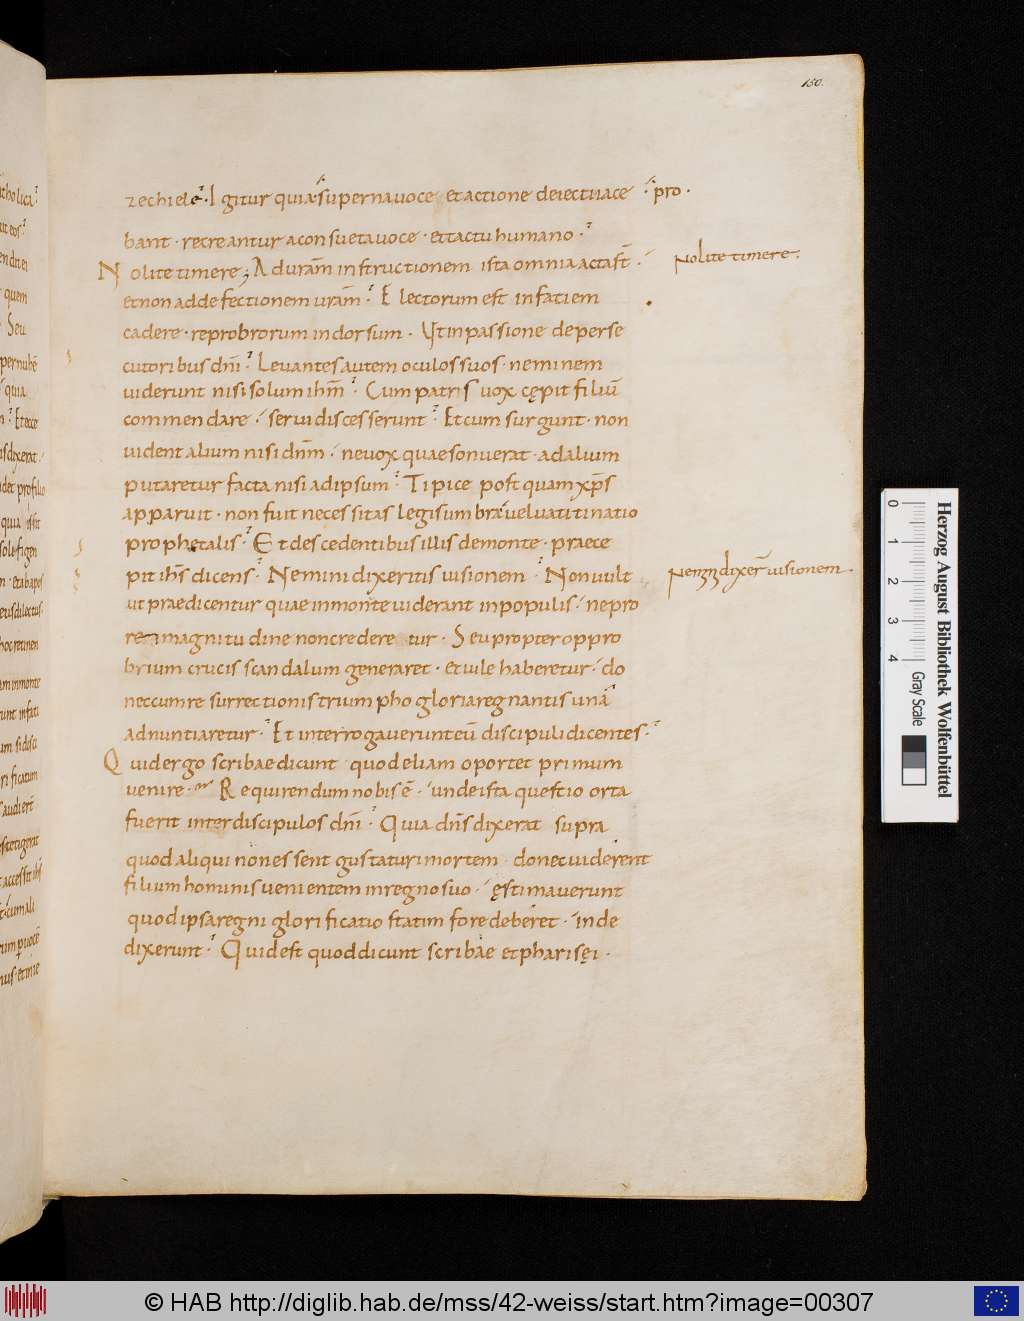 150.
zechiele. Igitur quia supernauoce et actione deiecti iace pro.
bant · recreantur aconsuetauoce · et tactu humano.
Nolite timere; Ad uram̄ instructionem ista omnia acta st̄.
Nolite timere.
et non ad defectionem uram̄. Electorum est infatiem
cadere · reproborum in dorsum. Ut in passione deperse
cutoribus dn̄i. Leuantes autem oculos suos · neminem
uiderunt nisi solum ih̄m. Cum patris uox cępit filiū
commendare · serui discesserunt. Et cum surgunt · non
uident alium nisi dn̄m · ne uox quae sonuerat · ad alium
putaretur facta nisi ad ipsum. Tipice postquam xp̄s
apparuit · non fuit necessitas legis umbrae uel uatitinatio
prophetalis. Et descedentibus illis demonte · praece
pit ih̄s dicens. Nemini dixeritis uisionem. Non uult
Nemini dixer̄ uisionem.
ut praedicentur quae in monte uiderant in populis · ne pro
rei magnitudine non credere tur. Seu propter oppro
brium crucis scandalum generaret · et uile haberetur · do
nec cum resurrectionis triumpho gloria regnantis unā
adnuntiaretur. Et interrogauerunt eū discipuli dicentes.
Quid ergo scribae dicunt quod eliam oportet primum
uenire. Requirendum nobis ē · unde ista questio orta
fuerit inter discipulos dn̄i. Quia dn̄s dixerat supra
quod aliqui non essent gustaturi mortem · donec uiderent
filium hominis uenientem in regno suo · ęstimauerunt
quod ipsa regni glorificatio statim fore deberet · inde
dixerunt. Quid est quod dicunt scribae et pharisęi.
0 1 2 3 4
Gray Scale
Herzog August Bibliothek Wolfenbüttel
© HAB http://diglib.hab.de/mss/42-weiss/start.htm?image=00307